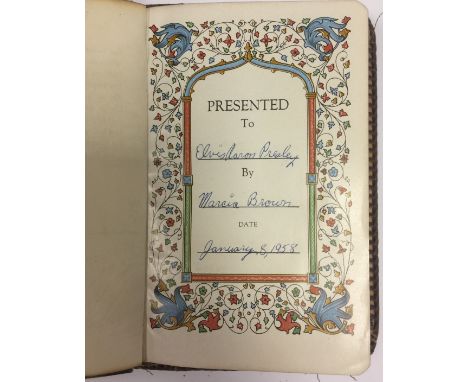 PRESENTED
To
Elvis Aaron Presley
By
Marcia Brown
DATE
January 8, 1958